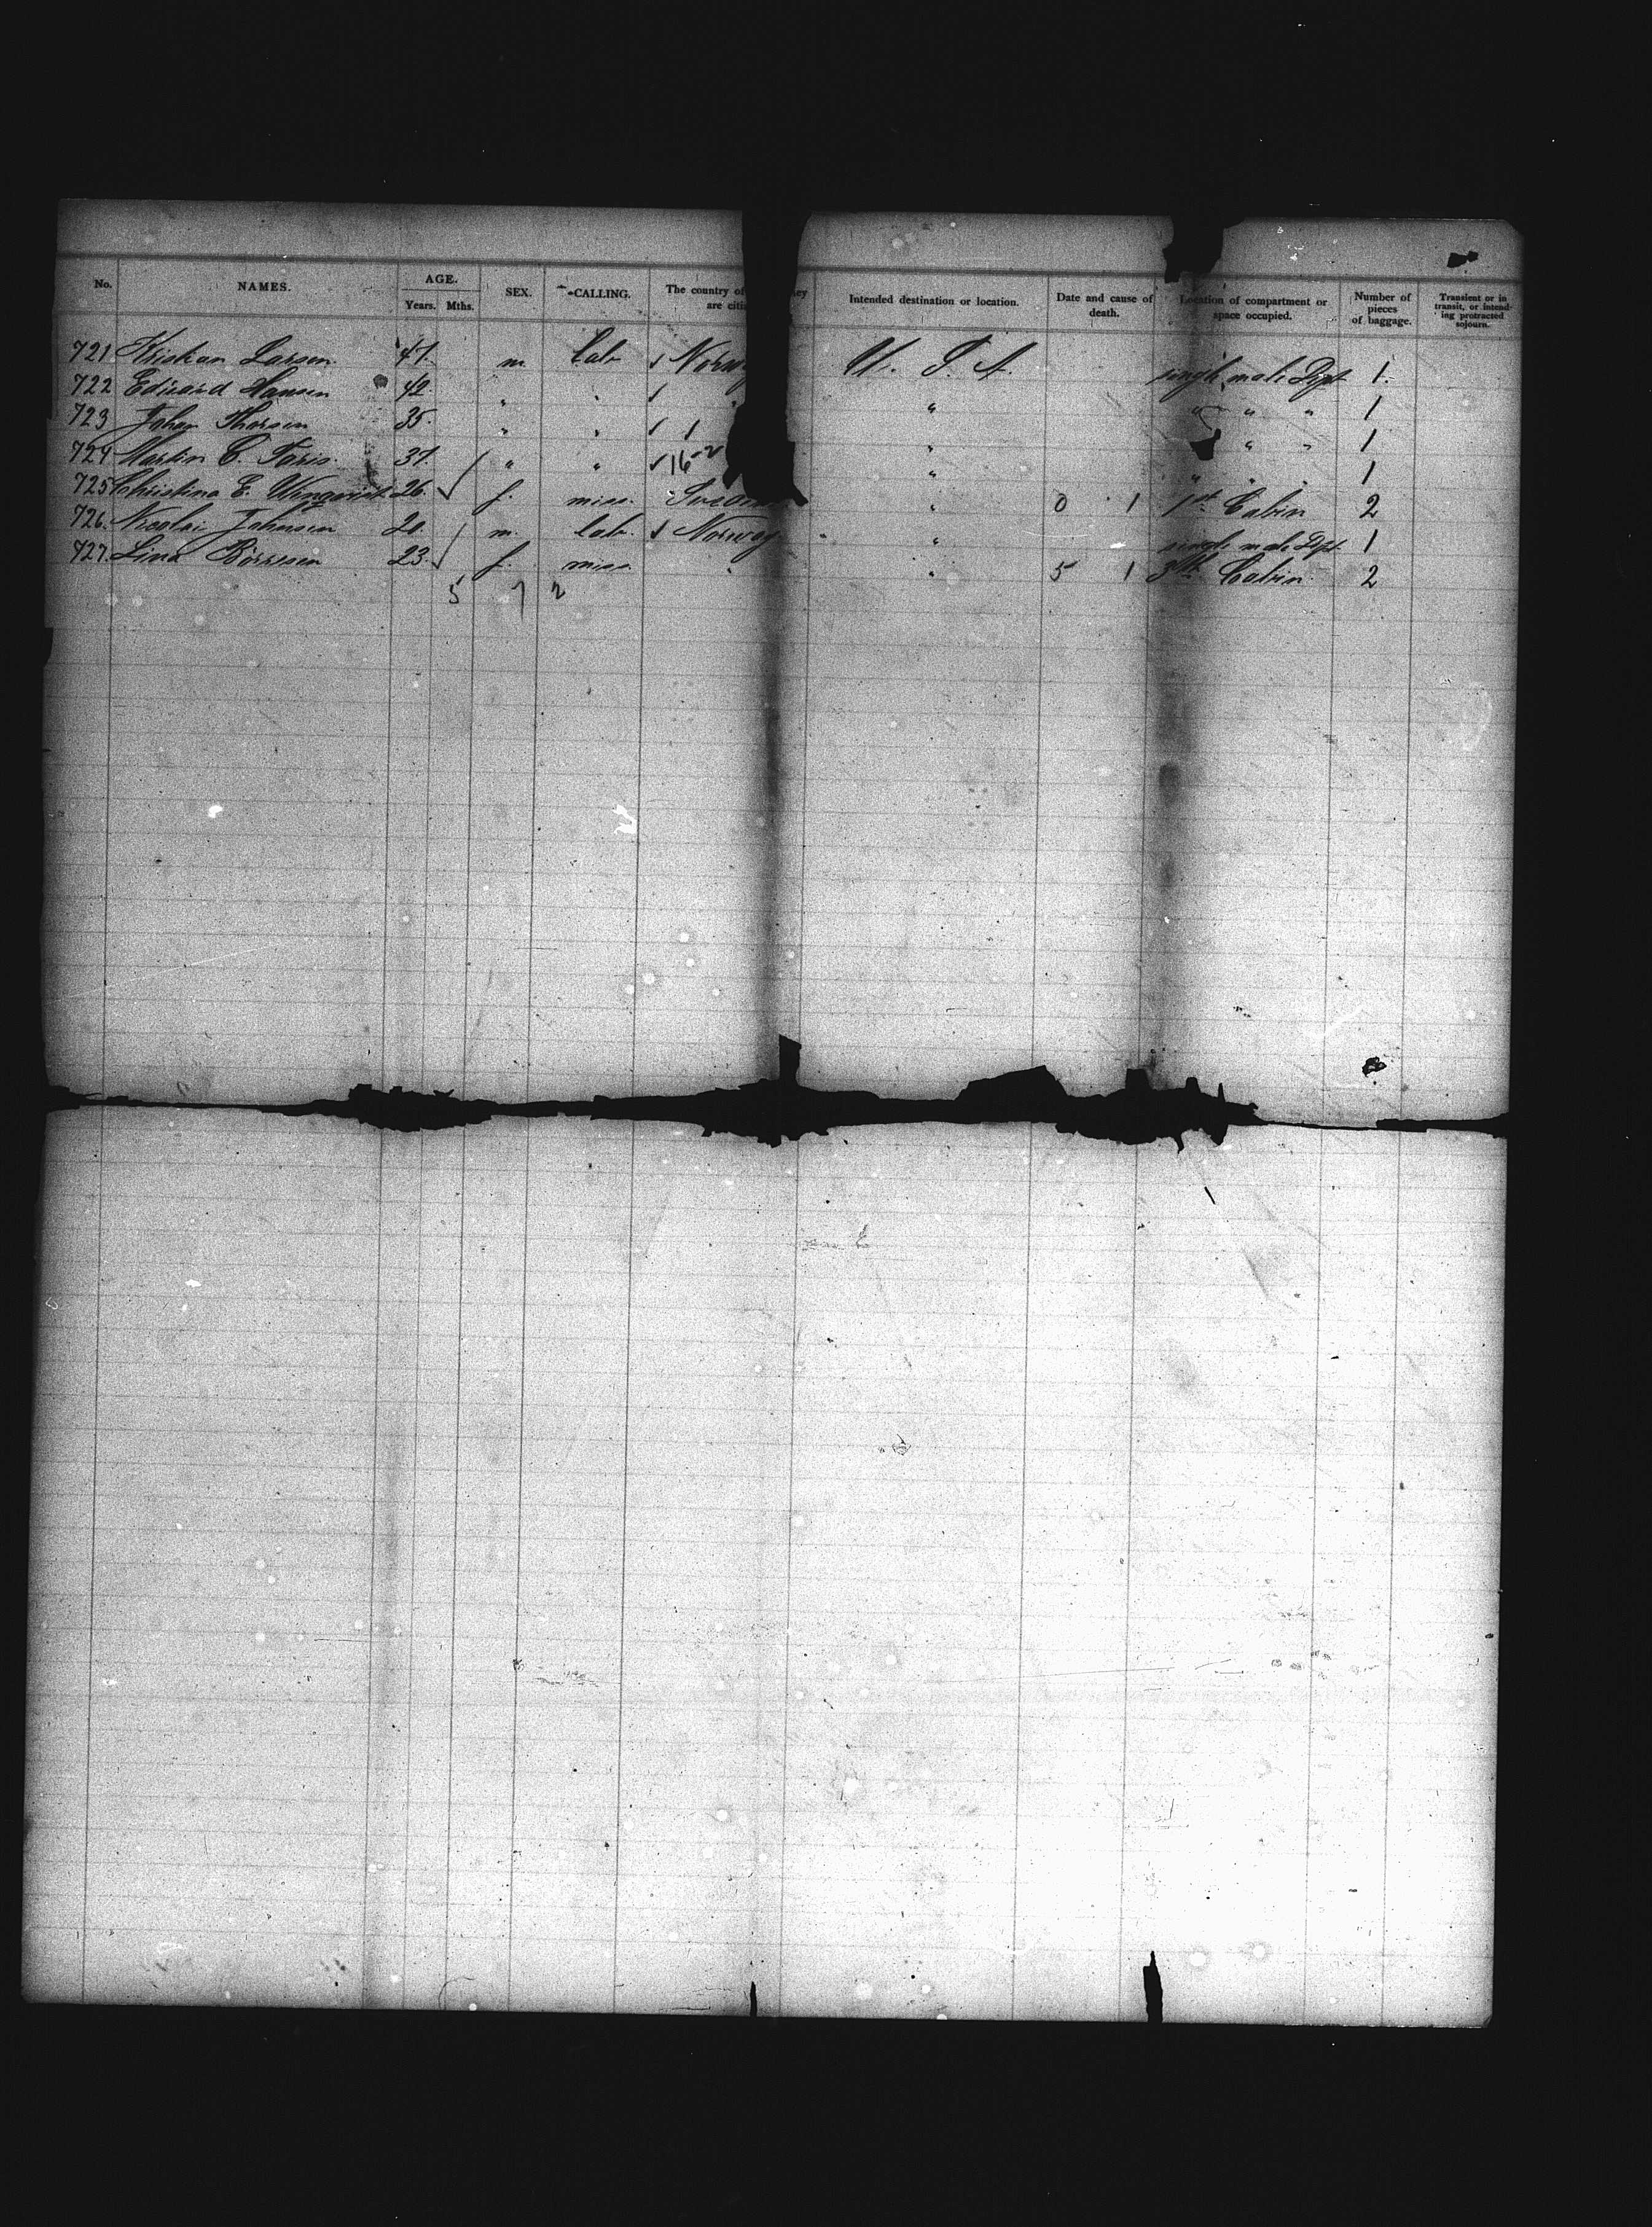 No. NAMES. AGE. Years. Mths. SEX. CALLING. The country of are citi ey Intended destination or location. Date and cause of death. Location of compartment or space occupied. Number of pieces of baggage. Transient or in transit, or intending protracted sojourn.
721 Kristian Larsen 47. m. lab. Norw U. S. A. single male Dept 1.
722 Edward Hansen 42 " " " " " " 1
723 Johan Thorsen 35. " " 1 " " " 1
724 Martin C. 37. " " 16-2 " " " " 1
725 Christina E. Wingqvist 26. f. miss. Sweden " 0 1 1st Cabin 2
726. Nicolai Johansen 20. m. lab. Norway " single male Dept. 1
727. Lina Börresen 23. f. miss. " " 5 1 3th Cabin 2
5 7 2